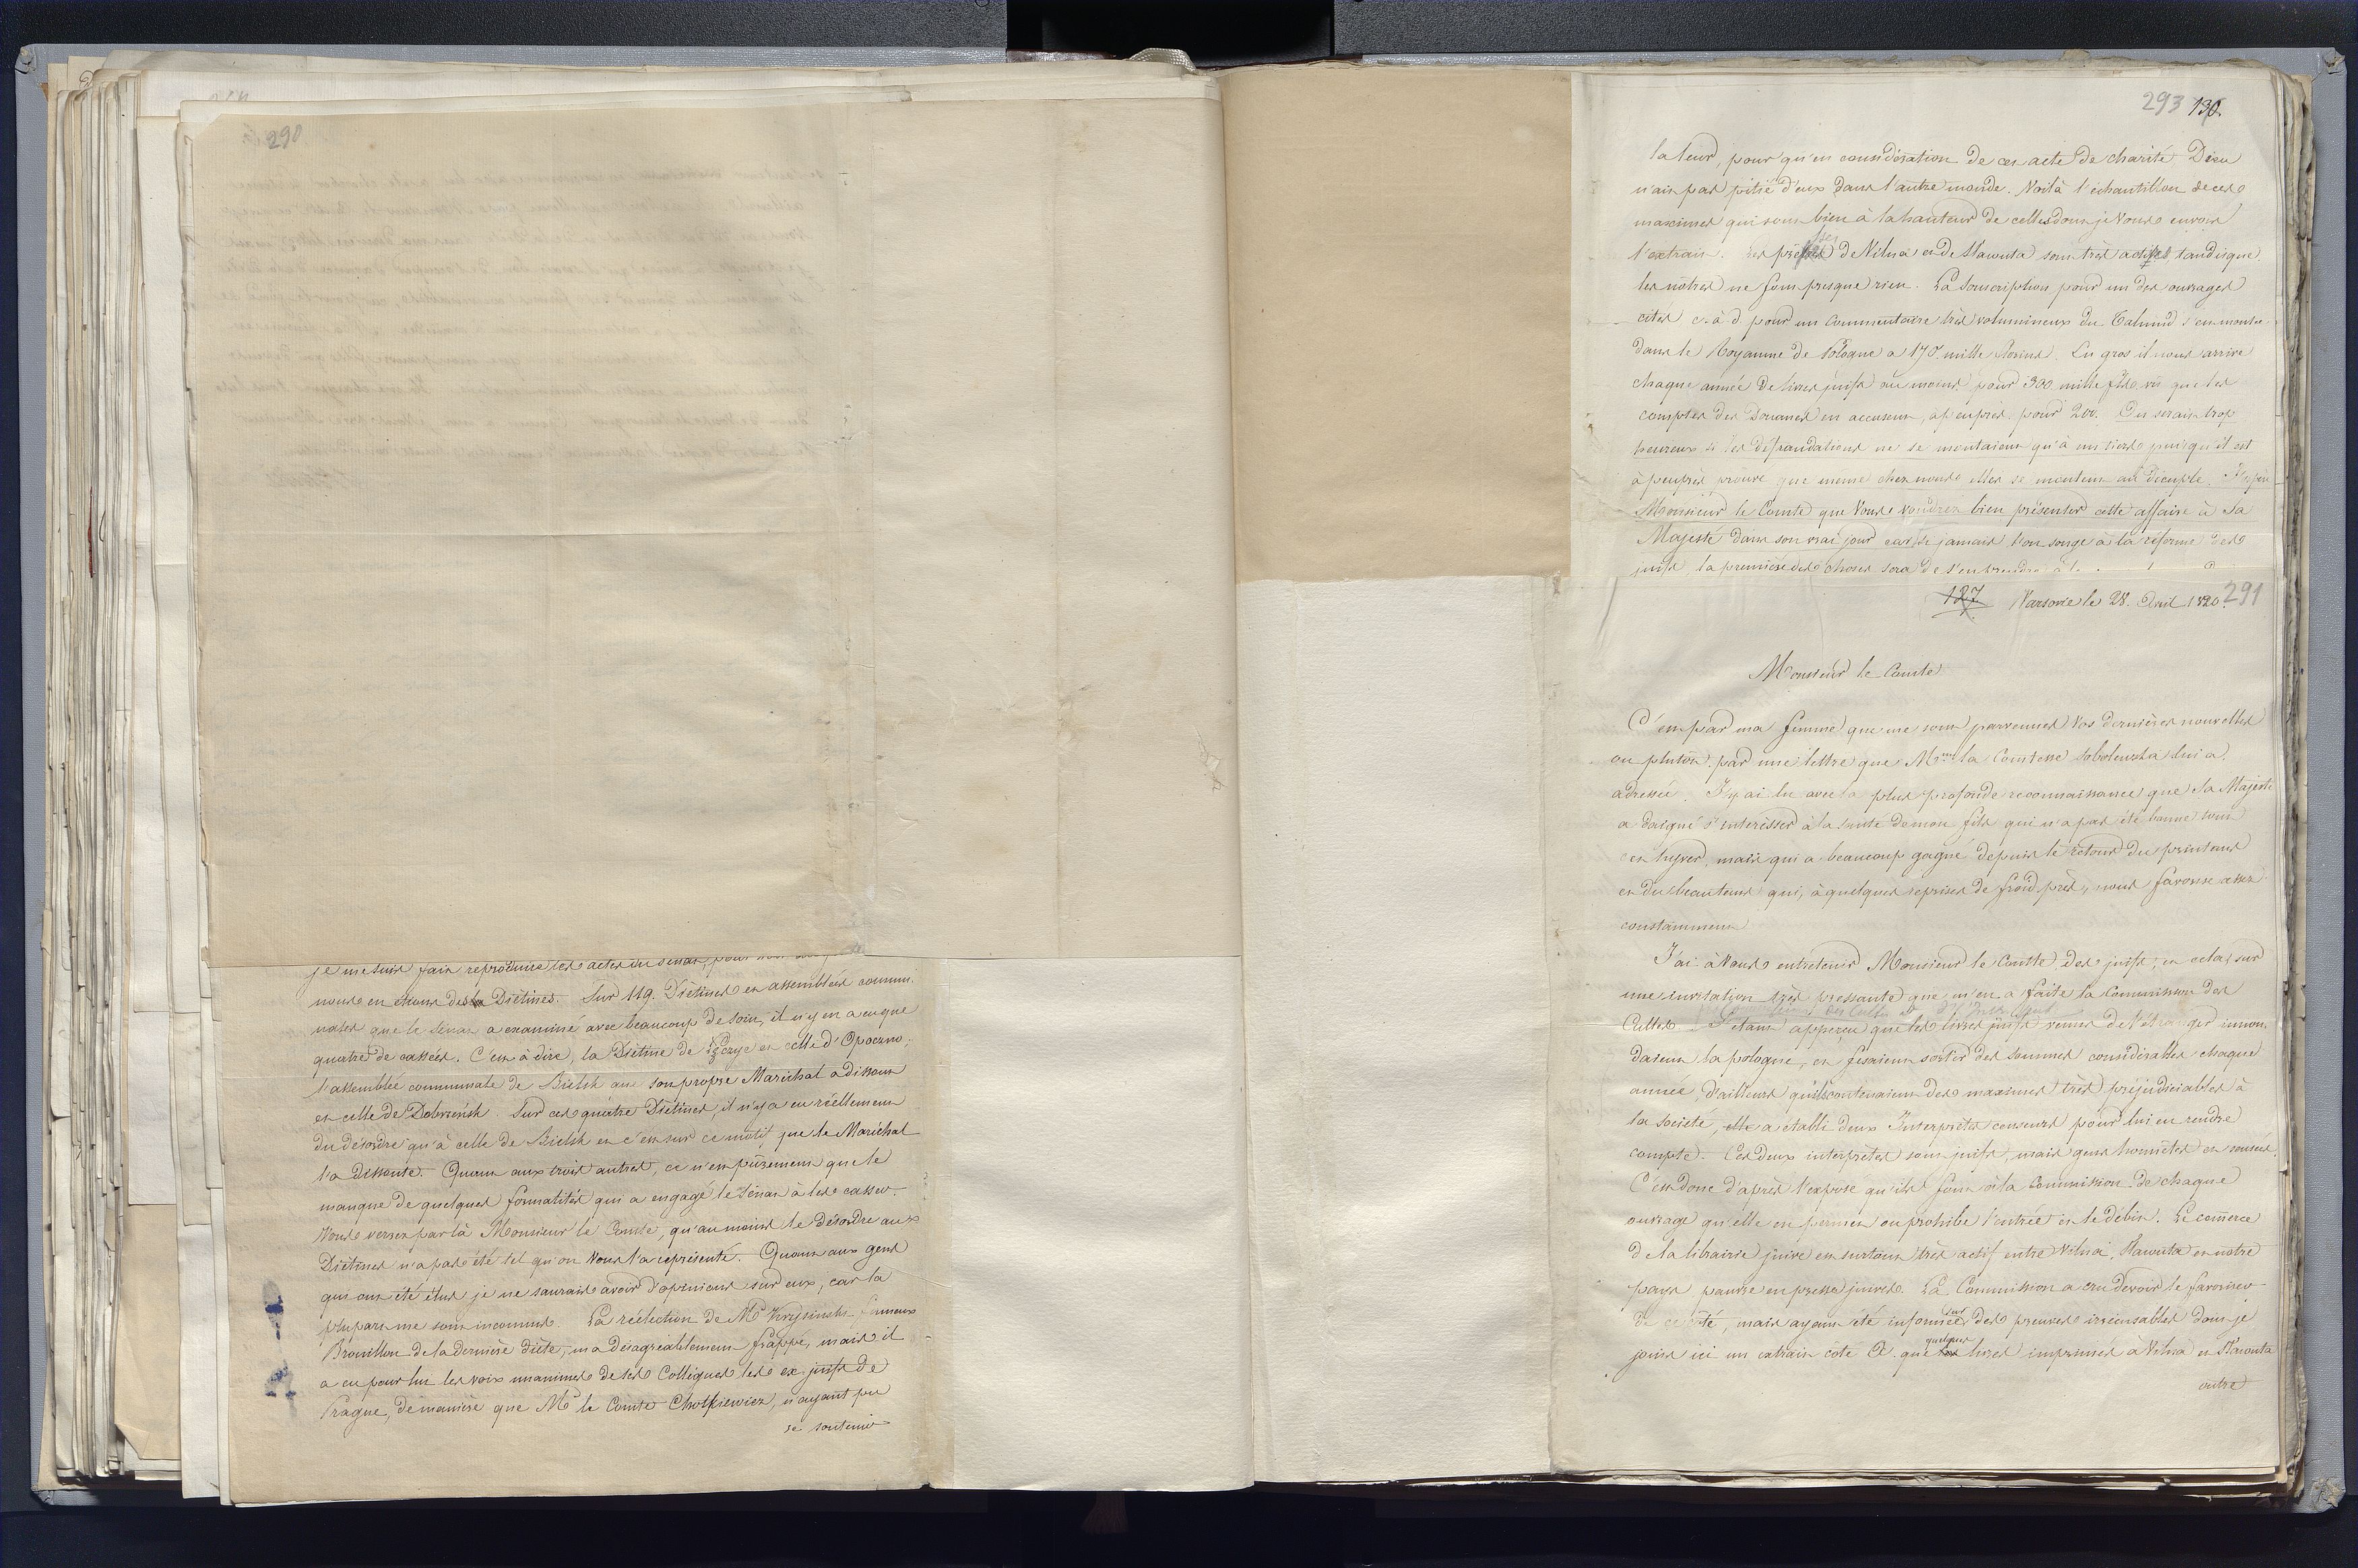 290
je me suis fait reproduire les actes du Senat, pour
nous en etions des Diétines. Sur 119. Diétines et assemblées commu-
nales que le Senat a examiné avec beaucoup de soin, il n'y en a eu que
quatre de cassées. C'est à dire, la Diétine de et celle d'Opoczno,
l'assemblée communale de Bielsk que son propre Maréchal a dissout
et celle de Dobrzinsk. Sur ces quatre Diétines, il n'y a eu réellement
du désordre qu'à celle de Bielsk et c'est sur ce motif que le Maréchal
l'a dissoute. Quant aux trois autres, ce n'est purement que le
manque de quelques formalités qui a engagé le Senat à les casser.
Vous verrez par là Monsieur le Comte, qu'au moins le désordre aux
Diétines n'a pas été tel qu'on Vous l'a représenté. Quant aux gens
qui ont été élus je ne saurais avoir d'opinions sur eux, car la
plupart me sont inconnus. La réélection de Mr Krysinski fameux
Brouillon de la dernière diète, m'a désagréablement frappé, mais il
a eu pour lui les voix unanimes de ses Collègues les ex-juifs de
Prague, de manière que Mr le Comte Chotkiewicz, n'ayant pu
se soutenir
293 130.
lateurs, pour qu'en considération de cet acte de charité Dieu
n'ait pas pitié d'eux dans l'autre monde. Voilà l'échantillon de ces
maximes qui sont bien à la hauteur de celles dont je Vous envois
l'extrait. de Vilna et de Slawuta sont très actives, tandis que
les nôtres ne font presque rien. La Souscription pour un des ouvrages
cités c. à d. pour un Commentaire très volumineux du Talmud s'est montée
dans le Royaume de Pologne a 170 mille florins. En gros il nous arrive
chaque année de livres juifs au moins pour 300 mille fls vû que les
comptes des Douanes en accusent, apeuprès pour 200. On serait trop
heureux si les défraudations ne se montaient qu'à un tiers puisqu'il est
à peuprès prouvé que même chez nous elles se montent au décuple. J'espère
Monsieur le Comte que Vous voudrez bien présenter cette affaire à Sa
Majesté dans son vrai jour car si jamais l'on songe à la réforme des
juifs, la première des choses sera de s'en prendre à
127 Varsovie le 28. Avril 1820. 291
Monsieur le Comte
C'est par ma femme que me sont parvenues Vos dernières nouvelles
ou plutôt par une lettre que Mme la Comtesse Sobolewska lui a
adressée. J'y ai lu avec la plus profonde reconnaissance que Sa Majesté
a daigné s'intéresser à la santé de mon fils qui n'a pas été bonne tout
cet hyver, mais qui a beaucoup gagné depuis le retour du printems
et du beau tems qui, à quelques reprises de froid près, nous favorise assez
constamment
J'ai à Vous entretenir Monsieur le Comte des juifs, et cela sur
une invitation très pressante que m'en a faite la Commission des
Cultes. S'étant apperçu que les livres juifs venus de l'étranger innon-
daient la pologne, en fesaient sortir des sommes considérables chaque
année d'ailleurs qu'ils contenaient des maximes très préjudiciables à
la société, elle a établi deux Interprètes censeurs pour lui en rendre
compte. Ces deux interprètes sont juifs, mais gens honnêtes et sensés.
C'est donc d'après l'exposé qu'ils font à la Commission de chaque
ouvrage qu'elle en permet ou prohibe l'entrée et le débit. Le comerce
de la librairie juive est surtout très actif entre Vilna, Slawuta et notre
pays pauvre en presses juives. La Commission a cru devoir le favoriser
de ce côté, mais ayant été informée sur des preuves irrécusables dont je
joins ici un extrait coté A. que quelques livres imprimés à Vilna et Slawuta
outre